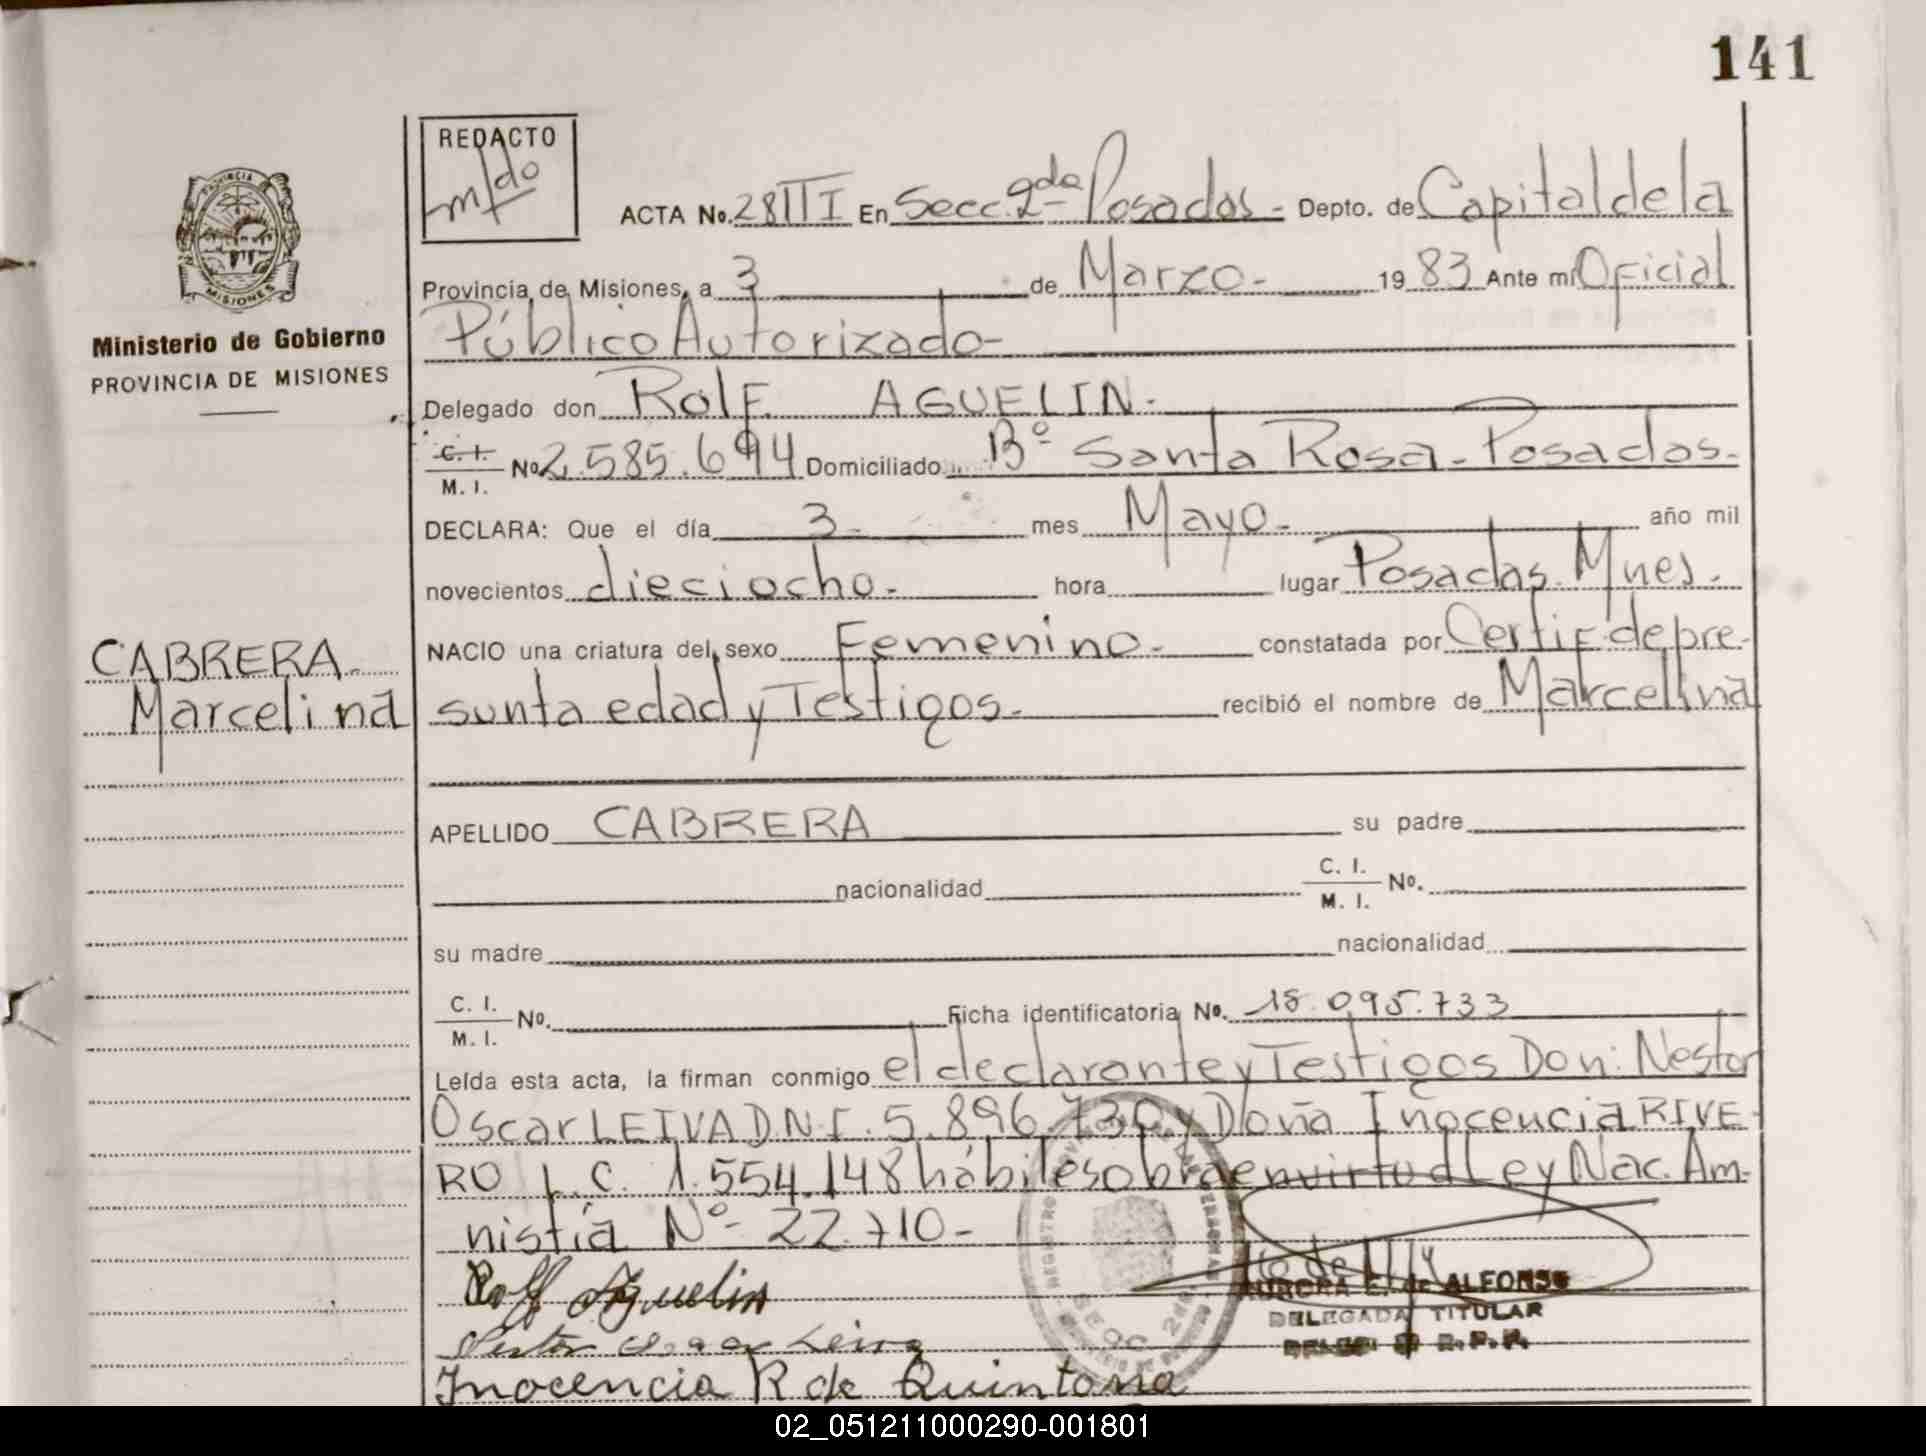 141
REDACTO
ACTA No. 28 III En Secc. 2da Posadas - Depto. de Capital de la
PROVINCIA
MISIONES
Provincia de Misiones, a 3 de Marzo - 19 83 Ante mí Oficial
Público Autorizado -
Ministerio de Gobierno
PROVINCIA DE MISIONES
Delegado don Rolf AGUELIN.
C. I.
M. I. No 2.585.694 Domiciliado Bº Santa Rosa - Posadas.
DECLARA: Que el día 3 - mes Mayo - año mil
novecientos dieciocho - hora lugar Posadas. Mnes.
NACIO una criatura del sexo Femenino - constatada por Certif. de pre-
CABRERA
Marcelina
sunta edad y Testigos - recibió el nombre de Marcelina
APELLIDO CABRERA su padre
nacionalidad C. I.
M. I. No.
su madre nacionalidad
C. I.
M. I. No. Ficha identificatoria No. 18.095.733
Leída esta acta, la firman conmigo el declarante y Testigos Don: Nestor
Oscar LEIVA D.N.I. 5.896.730 y Doña Inocencia RIVE-
RO L.C. 1.554.148 hábiles obra en virtud Ley Nac. Am-
nistía Nº - 22.710 -
Rolf Aguelin
Nestor Oscar Leiva
Inocencia R de Quintana
AURORA E. de ALFONSO
DELEGADA TITULAR
R.P.P.
REGISTRO
SECC 2da
02_051211000290-001801